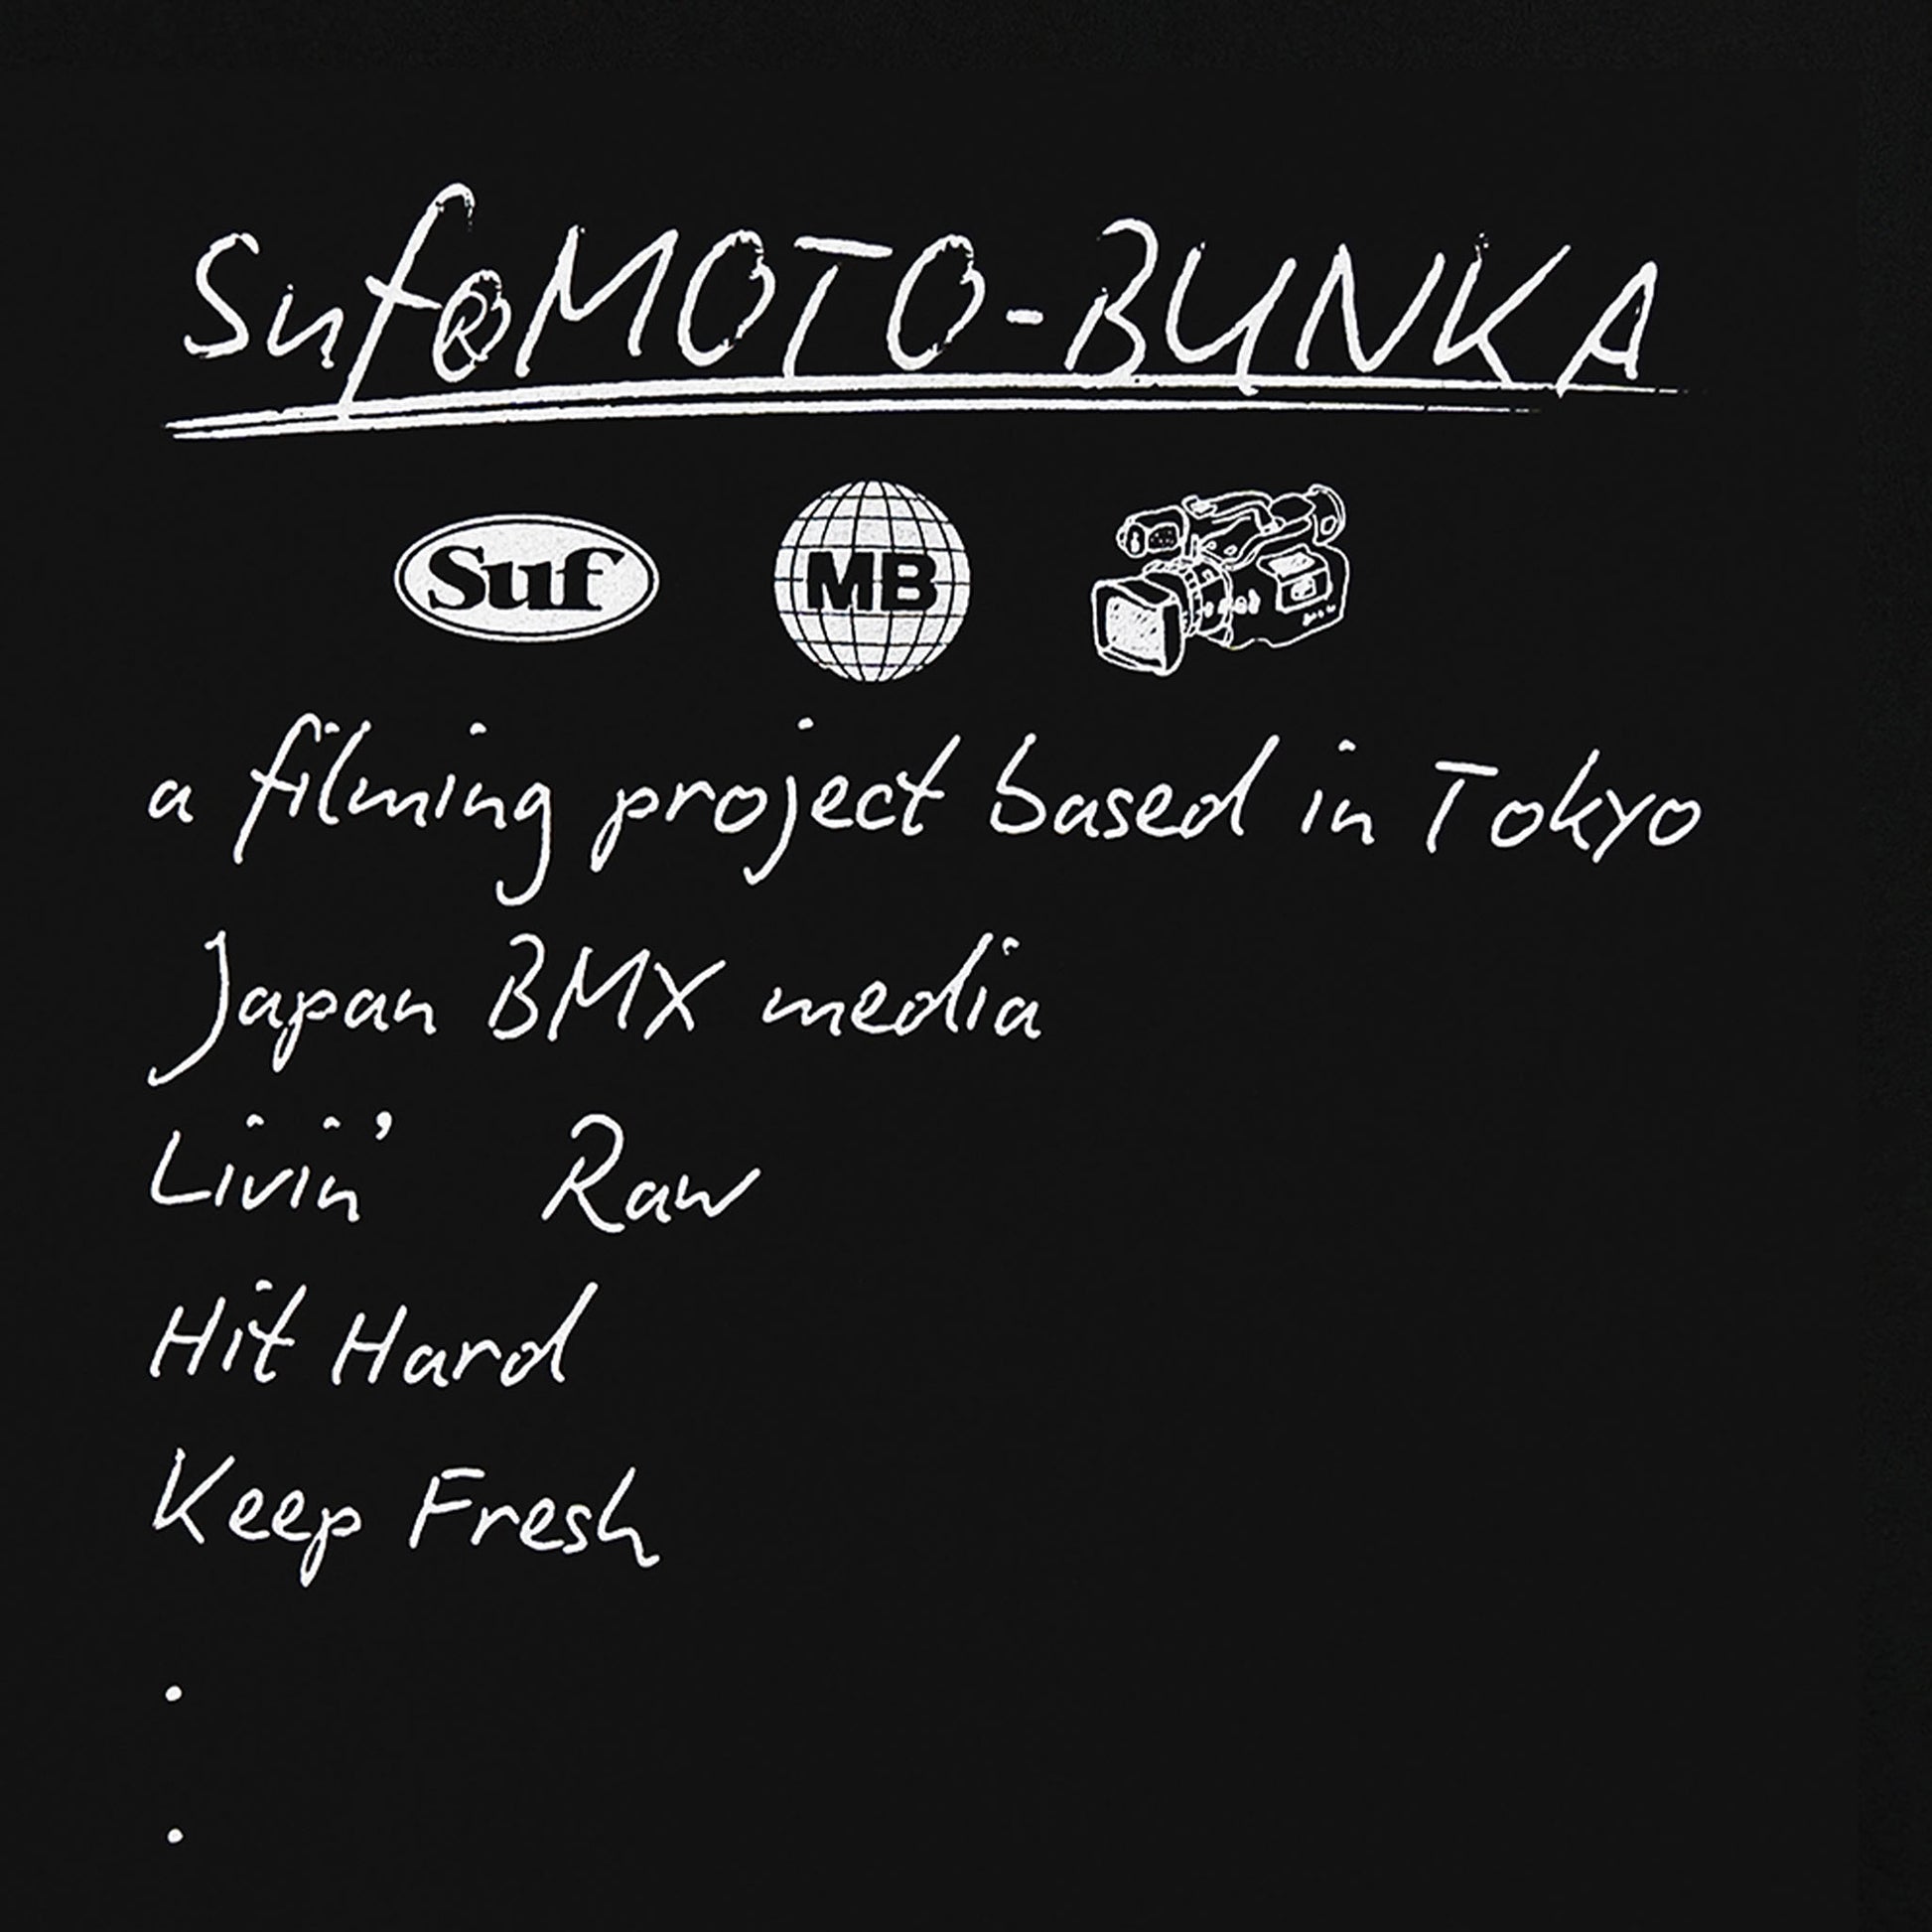 Suf®MOTO-BUNKA
Suf MB
a filming project based in Tokyo
Japan BMX media
Livin' Raw
Hit Hard
Keep Fresh
.
.